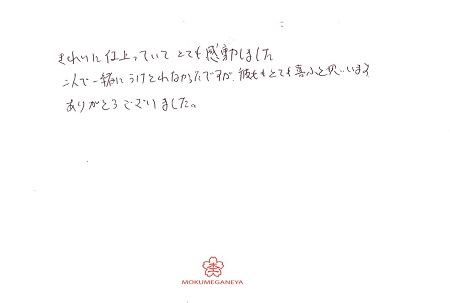 きれいに仕上っていてとても感動しました
二人で一緒にうけとれなかったですが、彼もとても喜ぶと思います
ありがとうございました。
MOKUMEGANEYA